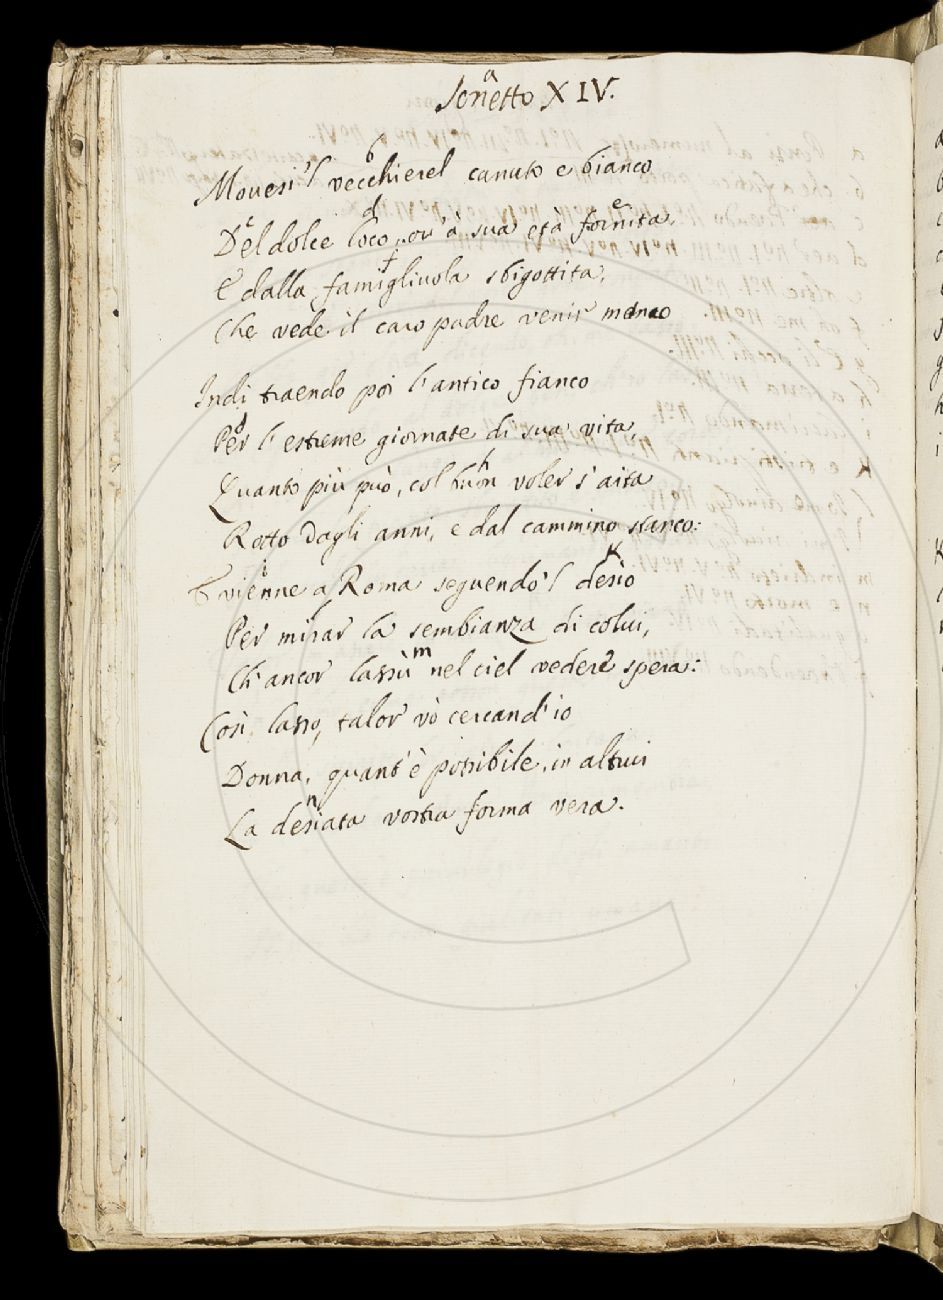 Sonetto XIV.
Movesi 'l vecchierel canuto e bianco
Del dolce loco, ov' à sua età fornita,
E dalla famigliuola sbigottita,
Che vede il caro padre venir manco
Indi traendo poi l'antico fianco
Per l'estreme giornate di sua vita,
Quanto più può, col buon voler s'aita
Rotto dagli anni, e dal cammino stanco:
E vienne a Roma seguendo 'l desio
Per mirar la sembianza di colui,
Ch'ancor lassù nel ciel vedere spera:
Così, lasso, talor vò cercand' io
Donna, quant' è possibile, in altrui
La desiata vostra forma vera.